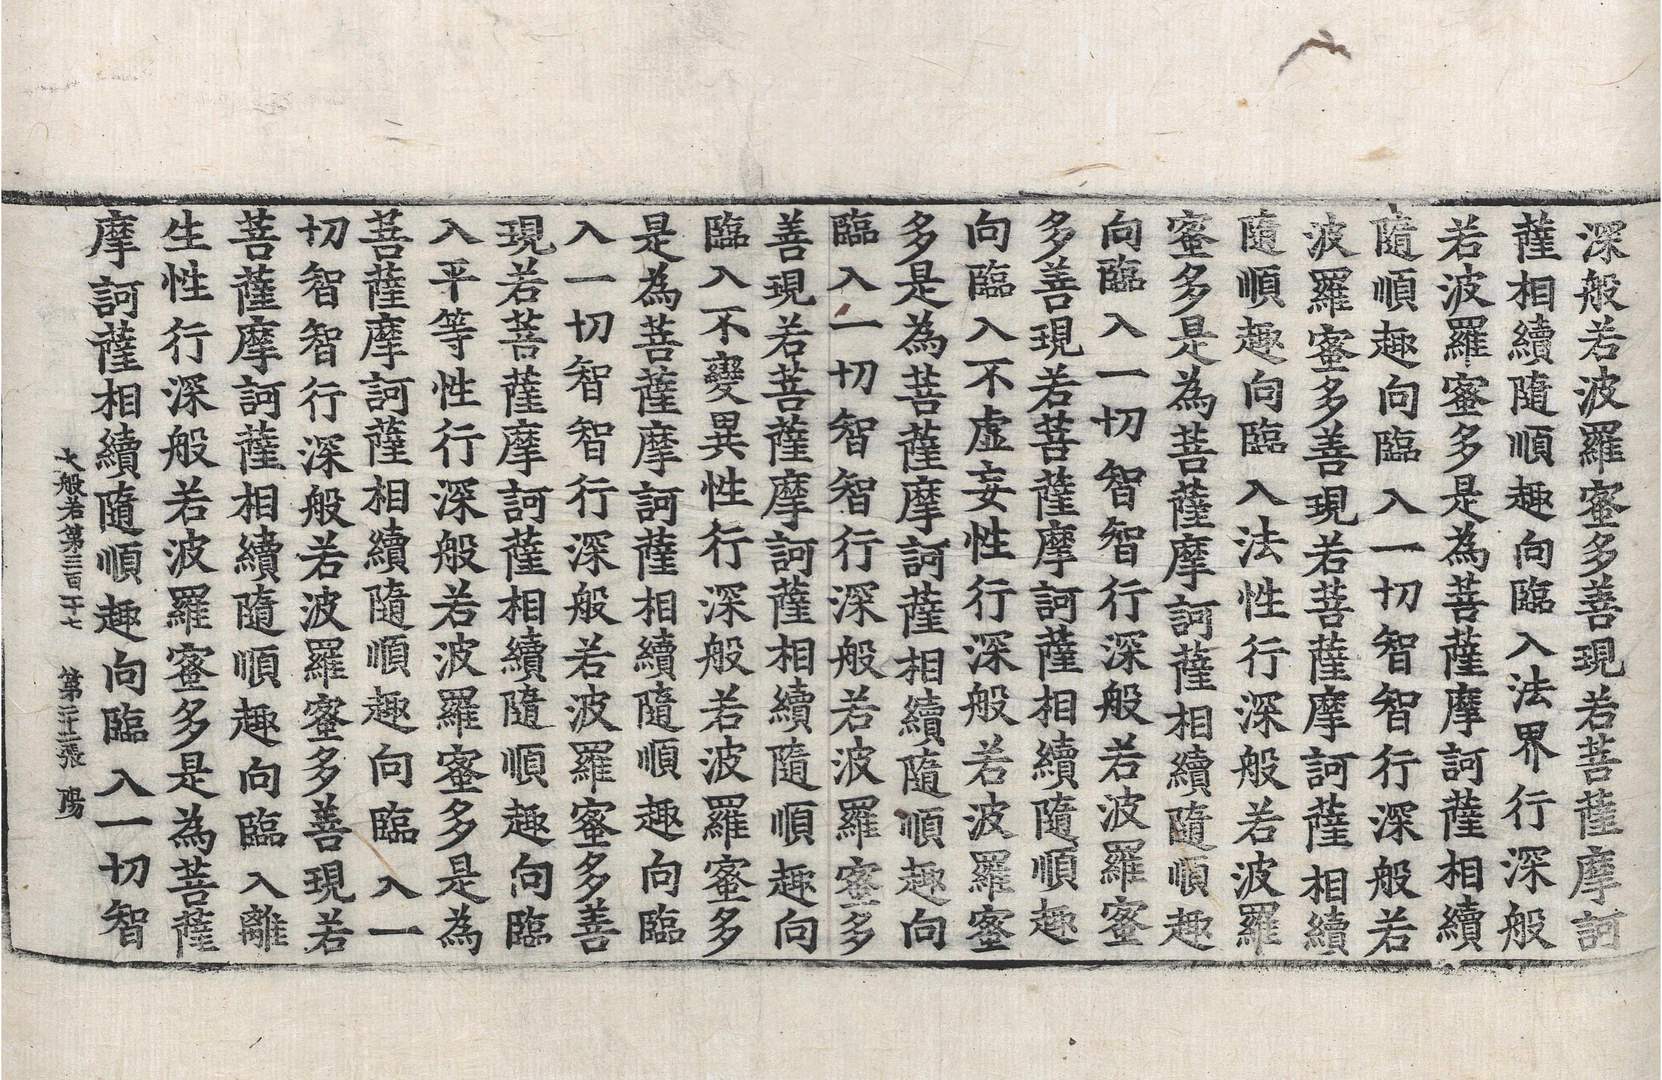 深般若波羅蜜多善現若菩薩摩訶
薩相續隨順趣向臨入法界行深般
若波羅蜜多是為菩薩摩訶薩相續
隨順趣向臨入一切智智行深般若
波羅蜜多善現若菩薩摩訶薩相續
隨順趣向臨入法性行深般若波羅
蜜多是為菩薩摩訶薩相續隨順趣
向臨入一切智智行深般若波羅蜜
多善現若菩薩摩訶薩相續隨順趣
向臨入不虛妄性行深般若波羅蜜
多是為菩薩摩訶薩相續隨順趣向
臨入一切智智行深般若波羅蜜多
善現若菩薩摩訶薩相續隨順趣向
臨入不變異性行深般若波羅蜜多
是為菩薩摩訶薩相續隨順趣向臨
入一切智智行深般若波羅蜜多善
現若菩薩摩訶薩相續隨順趣向臨
入平等性行深般若波羅蜜多是為
菩薩摩訶薩相續隨順趣向臨入一
切智智行深般若波羅蜜多善現若
菩薩摩訶薩相續隨順趣向臨入離
生性行深般若波羅蜜多是為菩薩
摩訶薩相續隨順趣向臨入一切智
大般若第三百二十七 第二十二張 陽